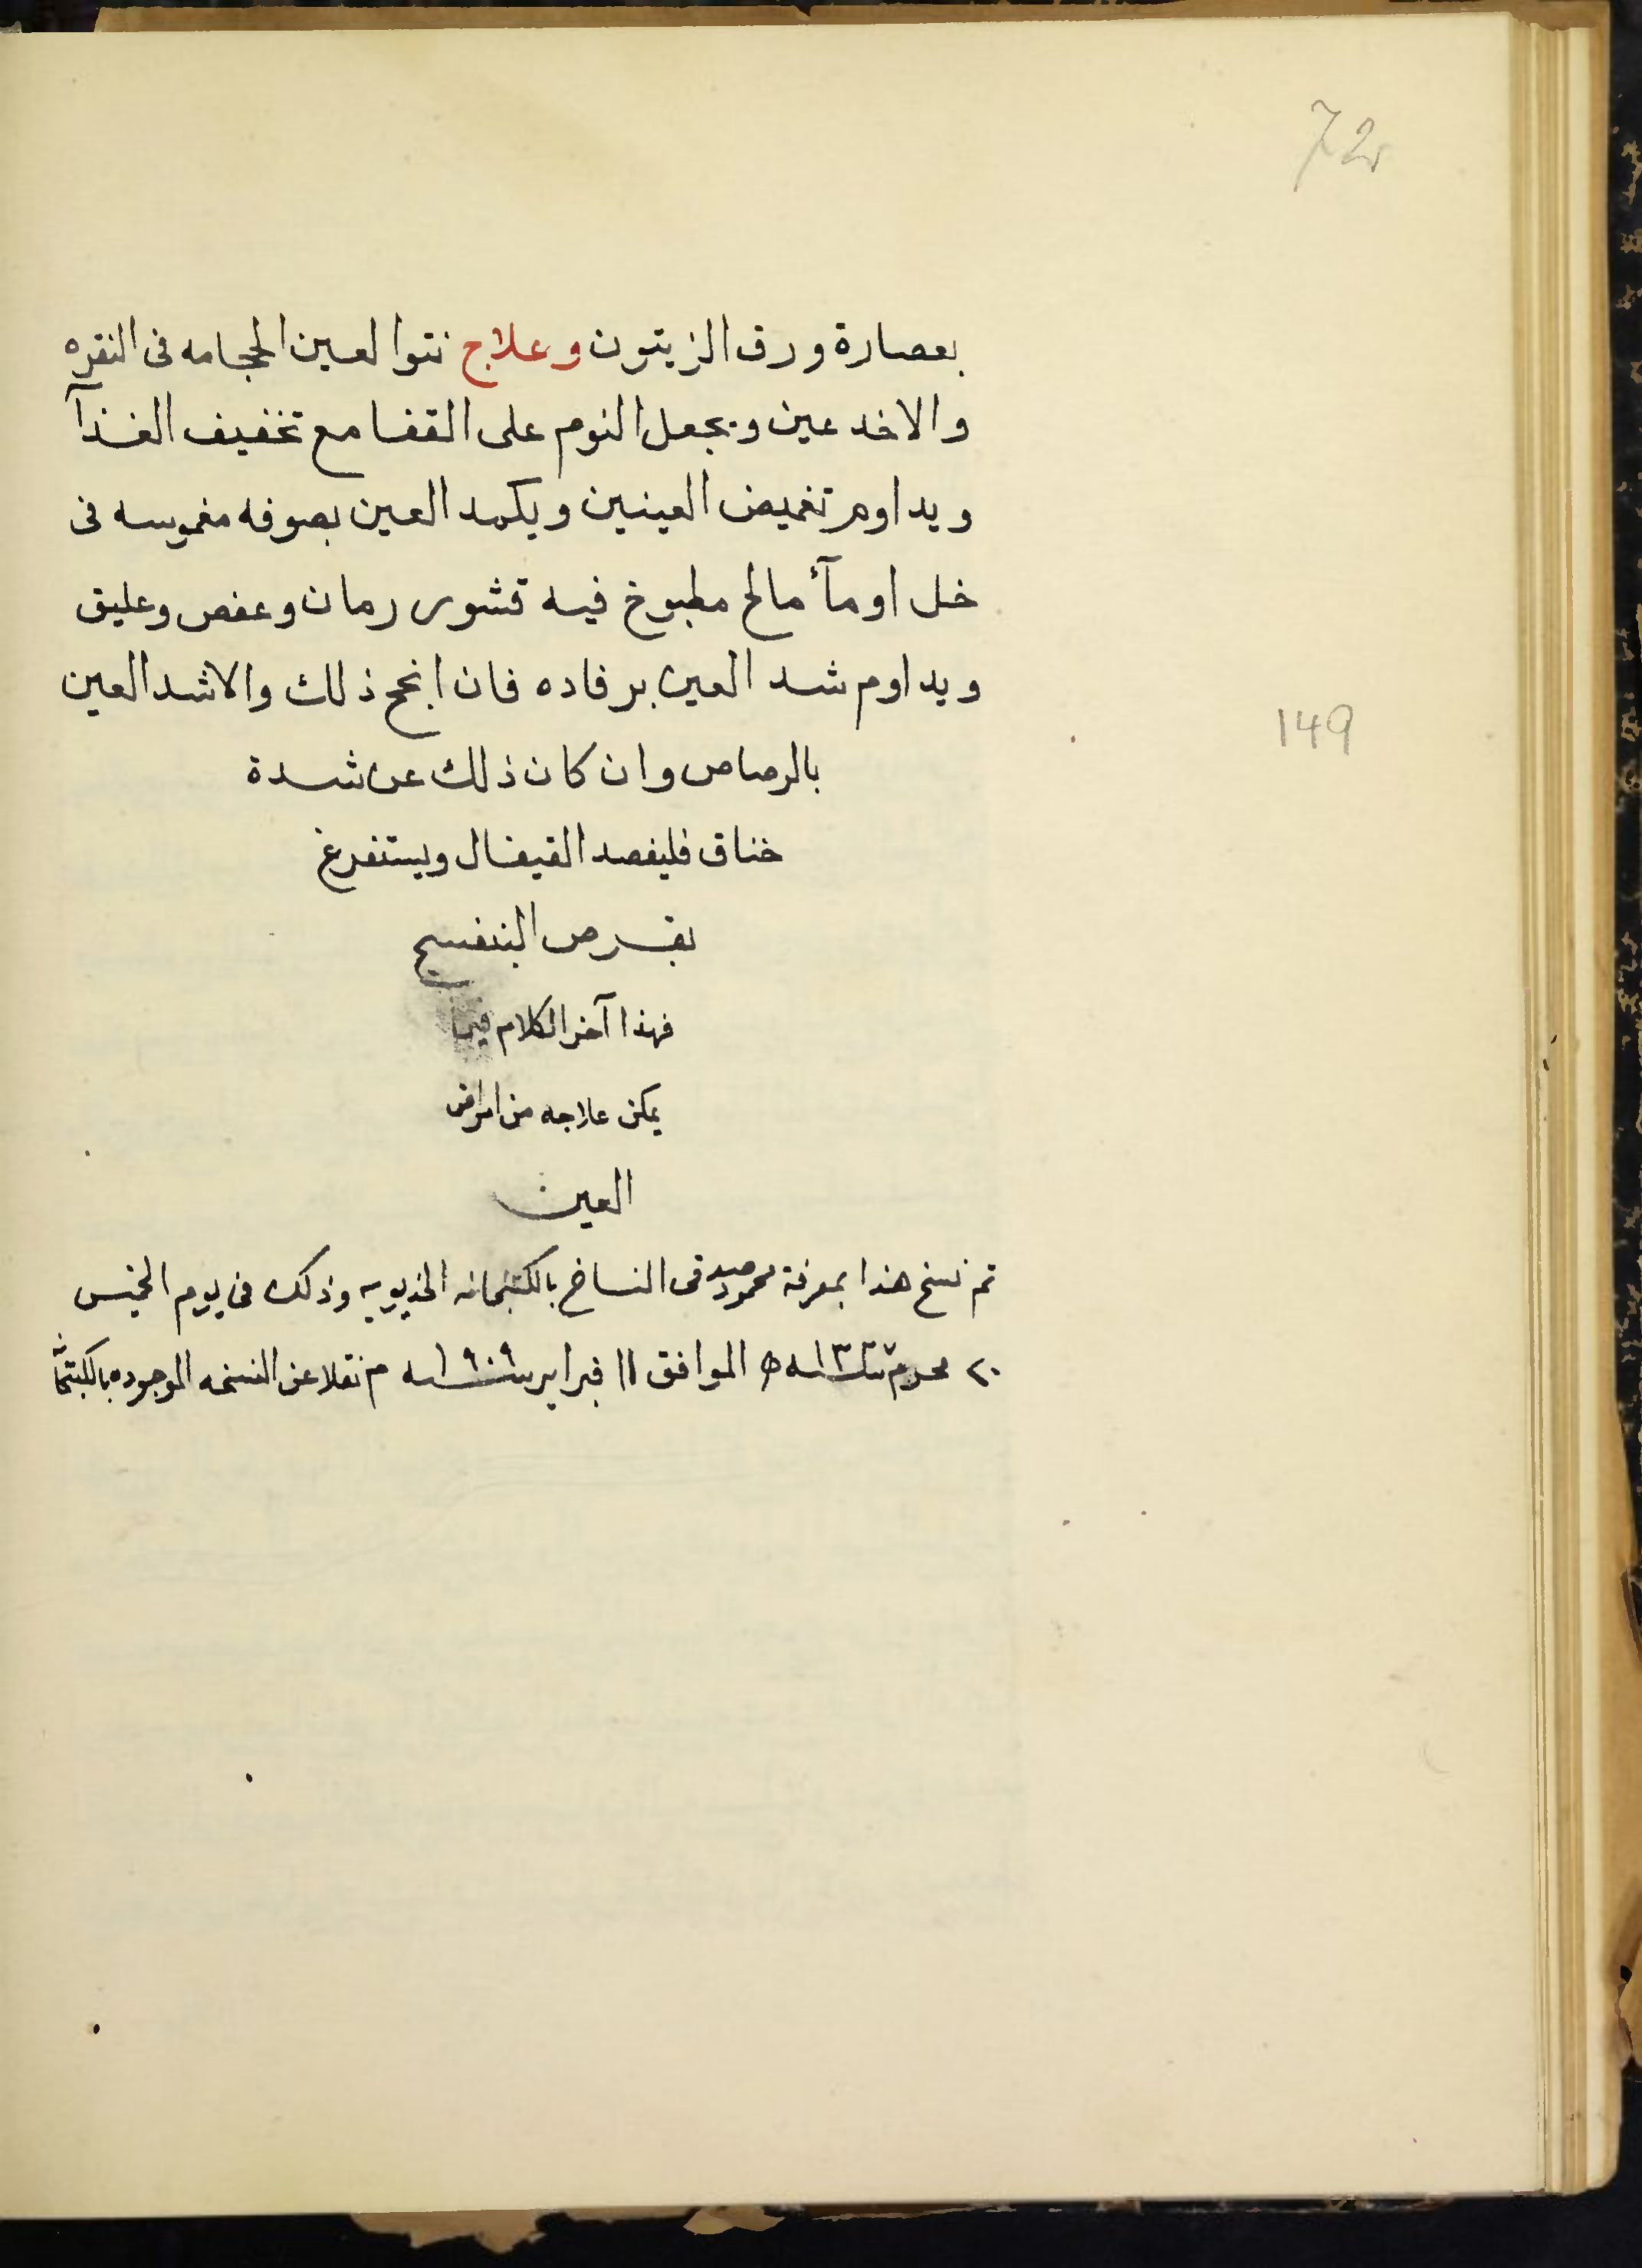 72
بعصارة ورق الزيتون وعلاج نتوا لعين الحجامه فى النقره
والاخدعين ويجعل النوم على القفا مع تخفيف الغذآ
ويداوم تغميض العينين ويكمد العين بصوفه مغموسه فى
خل او مآء مالح مطبوخ فيه قشور رمان وعفص وعليق
ويداوم شد العين برفاده فان انجح ذلك والا شد العين
149
بالرصاص وان كان ذلك عن شدة
خناق فليفصد القيفال ويستفرغ
بقرص البنفسج
فهذا آخر الكلام فيما
يمكن علاجه من امراض
العين
تم نسخ هذا بمعرفة محمود صدقى النساخ بالكتبخانه الخديويه وذلك فى يوم الخميس
٢٠ محرم سنة ١٣٢٧ ه الموافق ١١ فبراير سنة ١٩٠٩ م نقلا عن النسخه الموجوده بالكتبخانة